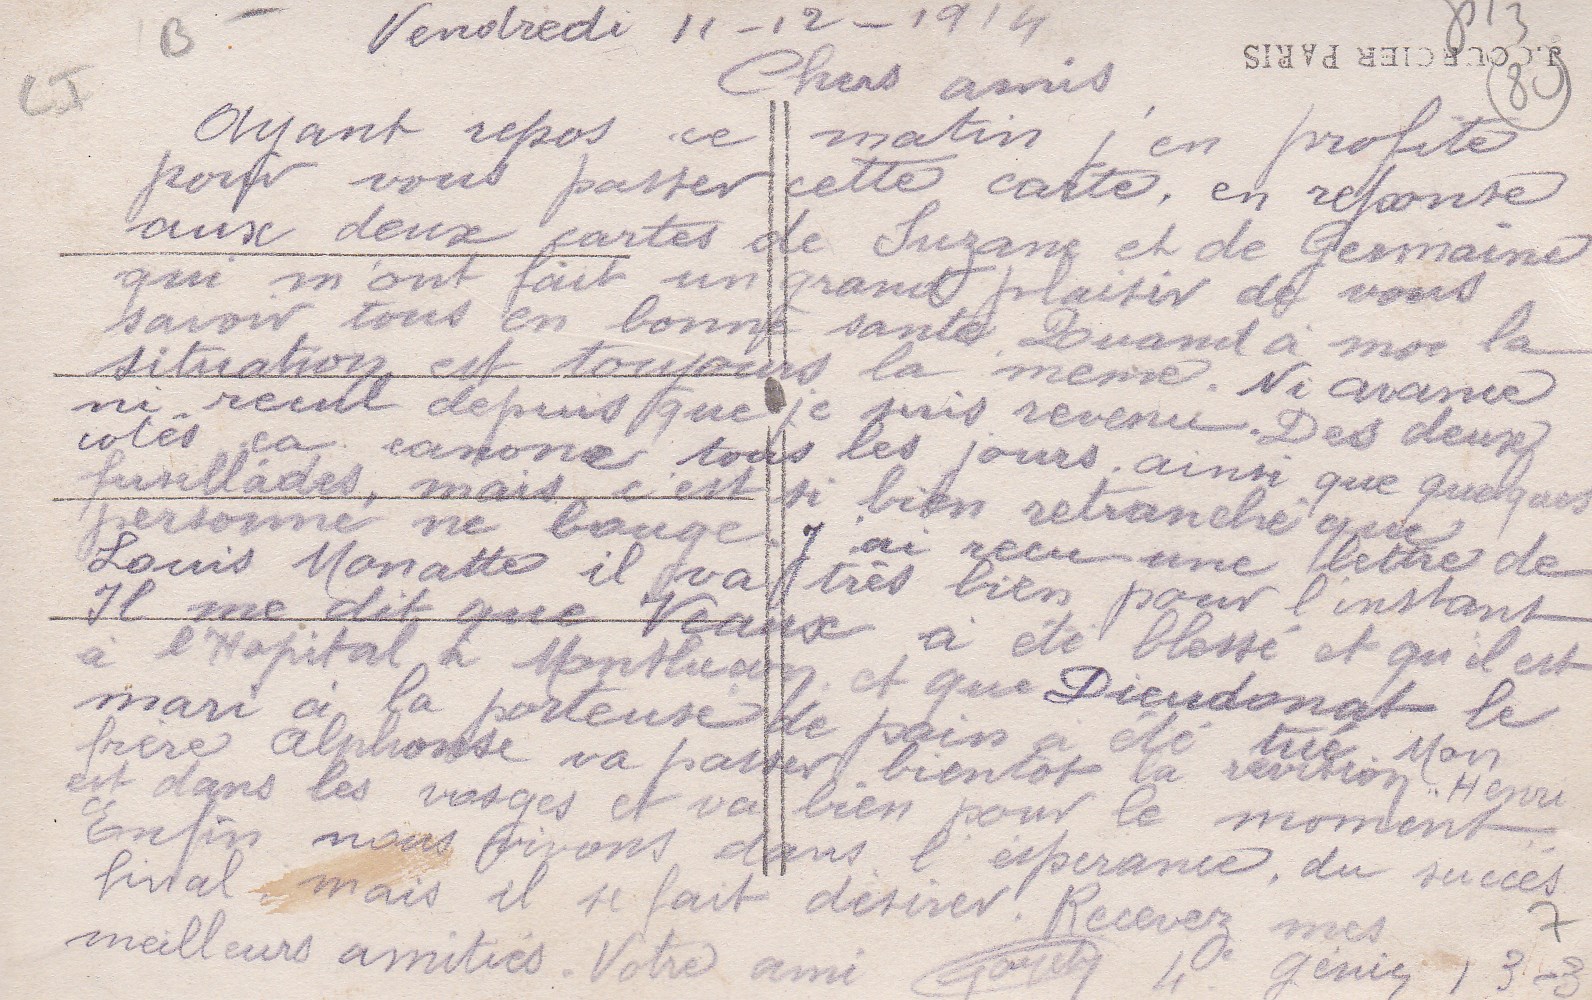 B
Vendredi 11-12-1914
p13
J. COURCIER PARIS
80
LJ
Chers amis
Ayant repos ce matin j'en profite
pour vous passer cette carte, en reponse
aux deux cartes de Suzane et de Germaine
qui m'ont fait un grand plaisir de vous
savoir tous en bonne santé. Quand à moi la
situation est toujours la meme. Ni avance
ni recul depuis que je suis revenu. Des deux
cotés ca canone tous les jours, ainsi que quelques
fusillades, mais c'est si bien retranché que
personne ne bouge. J'ai recu une lettre de
Louis Monatte il va très bien pour l'instant
Il me dit que Veaux à été blessé et qu'il est
à l'Hopital à Montlucon, et que Dieudonat le
mari à la porteuse de pain a été tué. Mon
frère Alphonse va passer bientot la revision. Henri
est dans les vosges et va bien pour le moment
Enfin nous vivons dans l'esperance, du succès
final mais il se fait désirer. Recevez mes
7
meilleurs amitiés. Votre ami 4e Génie 13-3